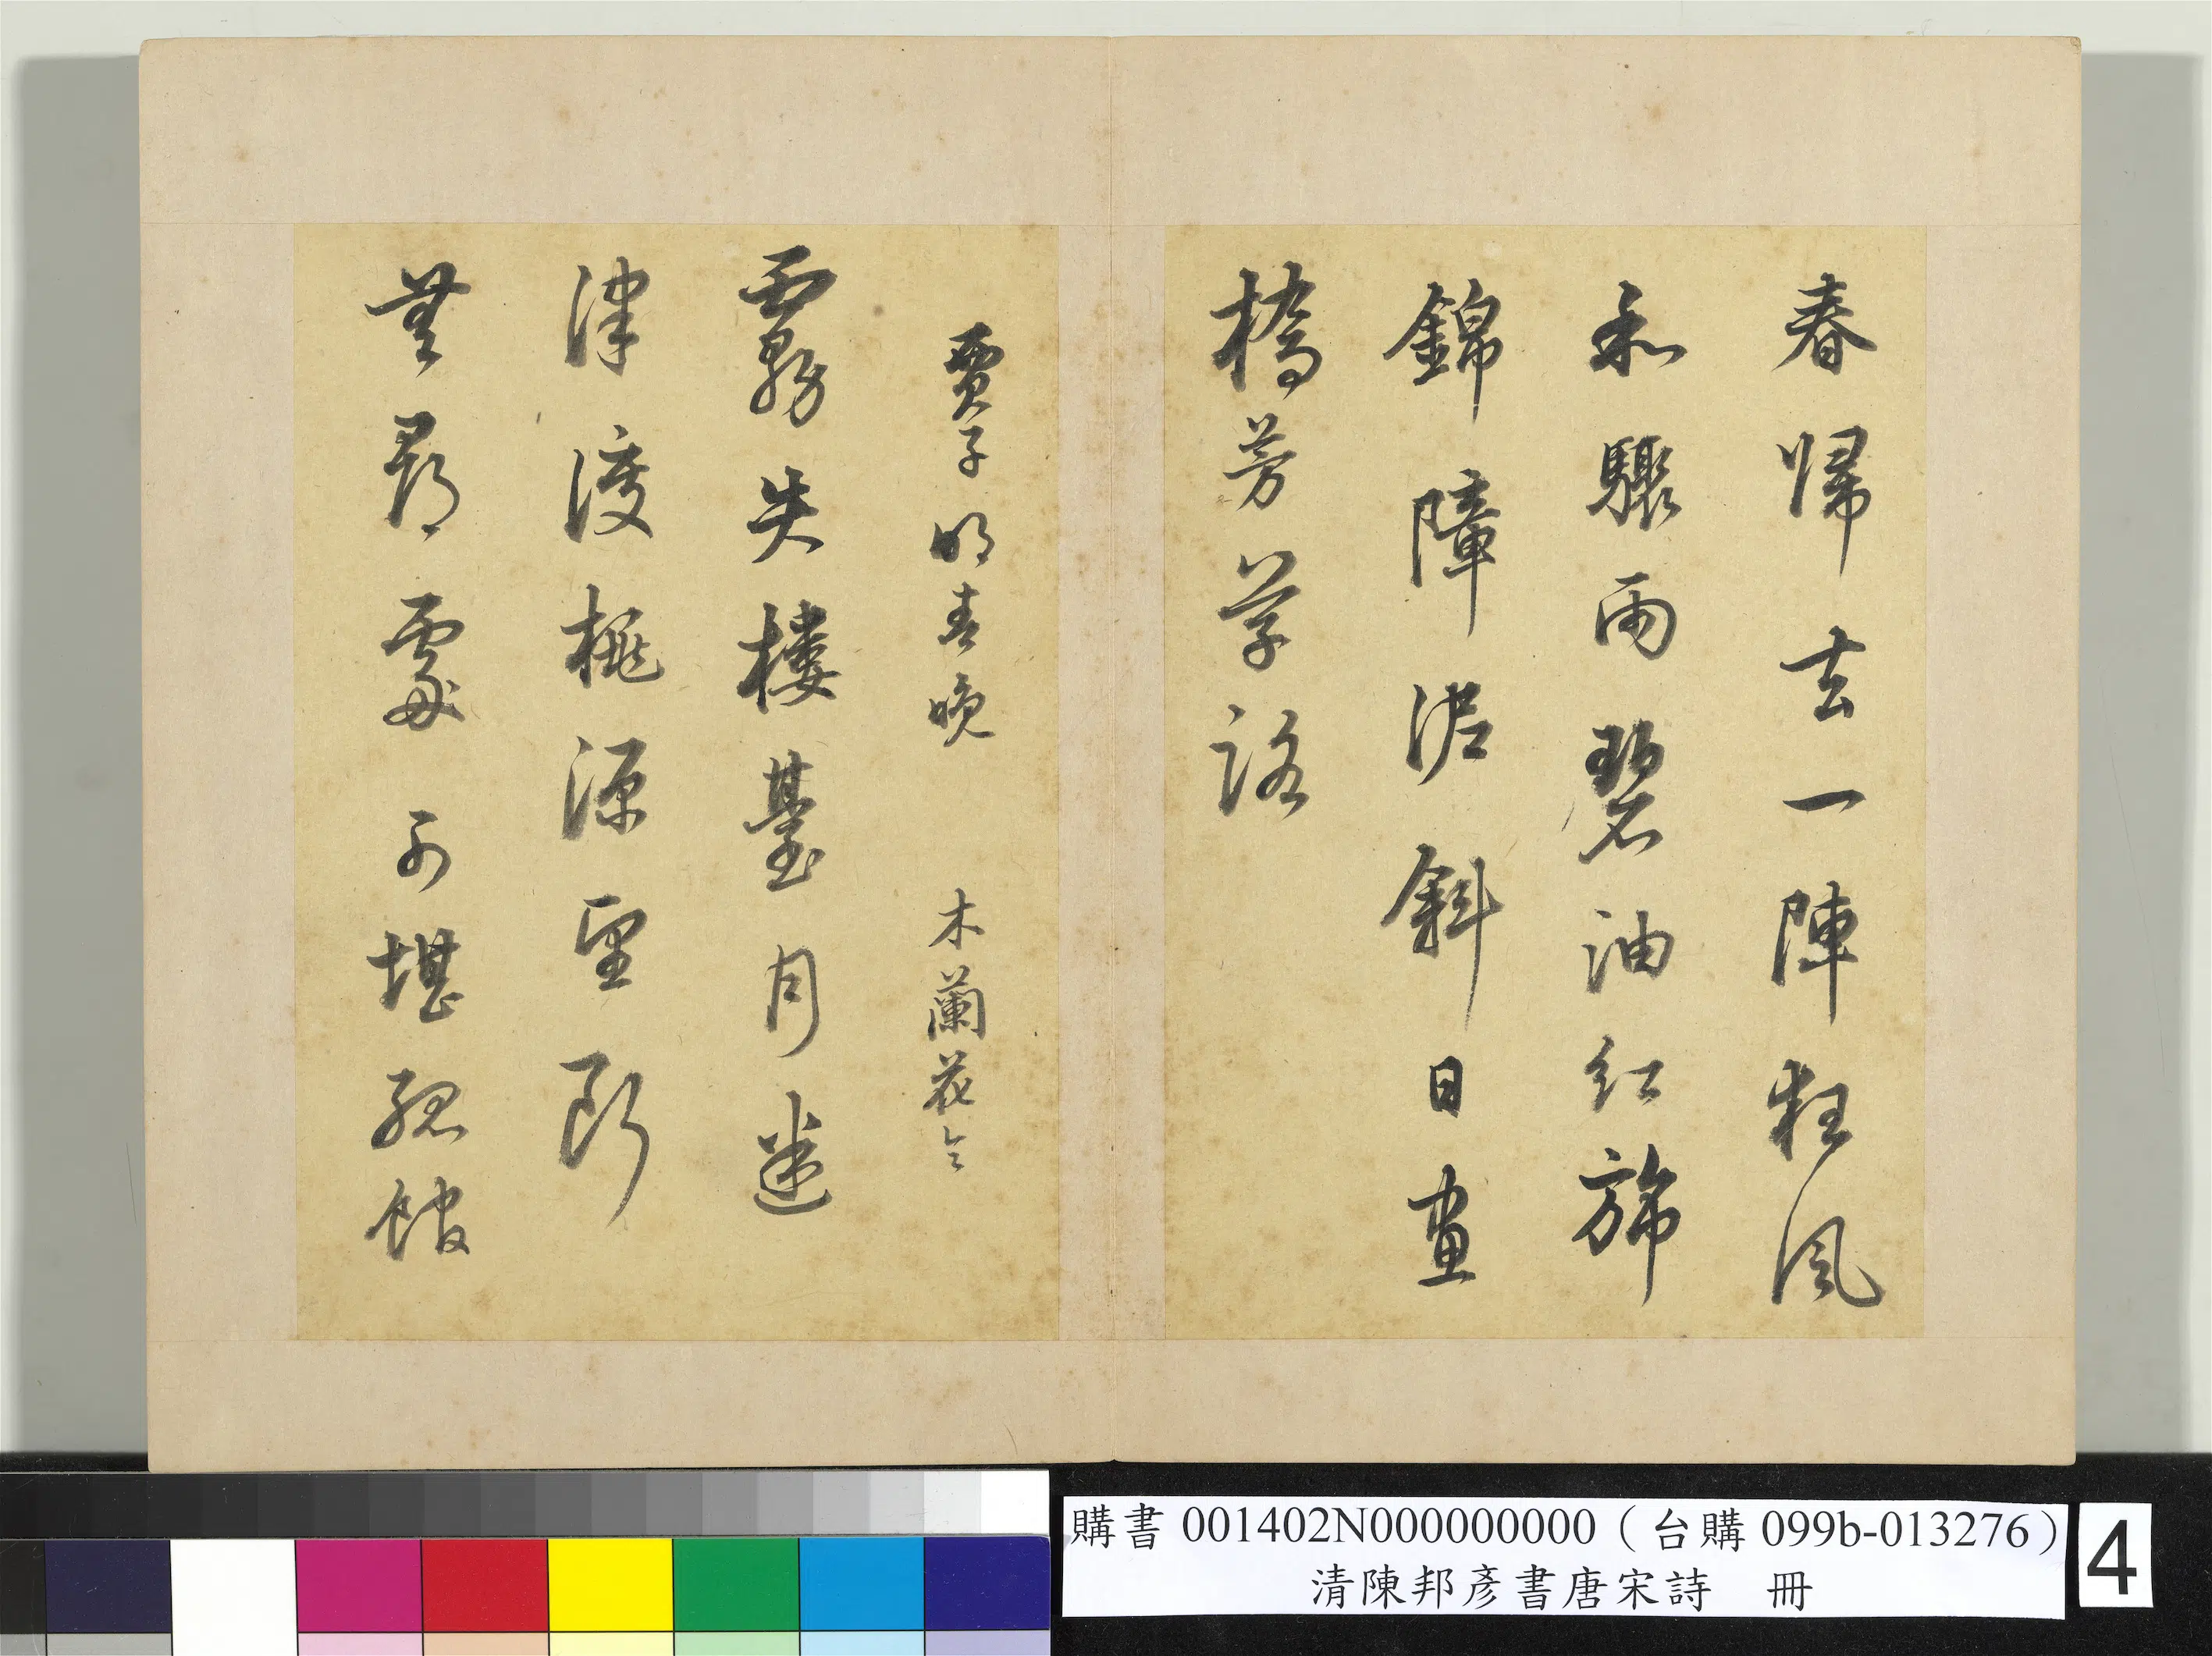 春歸去一陣狂風
和驟雨碧油紅旆
錦障泥斜日畫
橋芳草路
賈子明春晚　木蘭花令
霧失樓臺月迷
津渡桃源望斷
無尋處可堪孤館
購書 001402N000000000（台購 099b-013276）
清陳邦彥書唐宋詩　冊
4